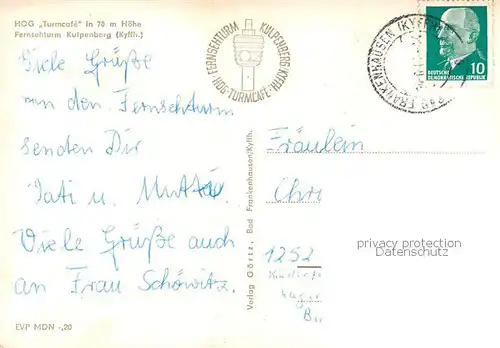 HOG „Turmcafé" in 78 m Höhe
Fernsehturm Kulpenberg (Kyffh.)
FERNSEHTURM KULPENBERG/KYFFH.
HOG-TURMCAFÉ
BAD FRANKENHAUSEN (KYFFH)
10
DEUTSCHE
DEMOKRATISCHE REPUBLIK
Viele Grüße
von den Fernsehturm
senden Dir
Vati u. Mutti
Viele Grüße auch
an Frau Schöwitz.
EVP MDN -,20
Verlag Görtz, Bad Frankenhausen/Kyffh.
Fräulein
Chri
1252
privacy protection
Datenschutz